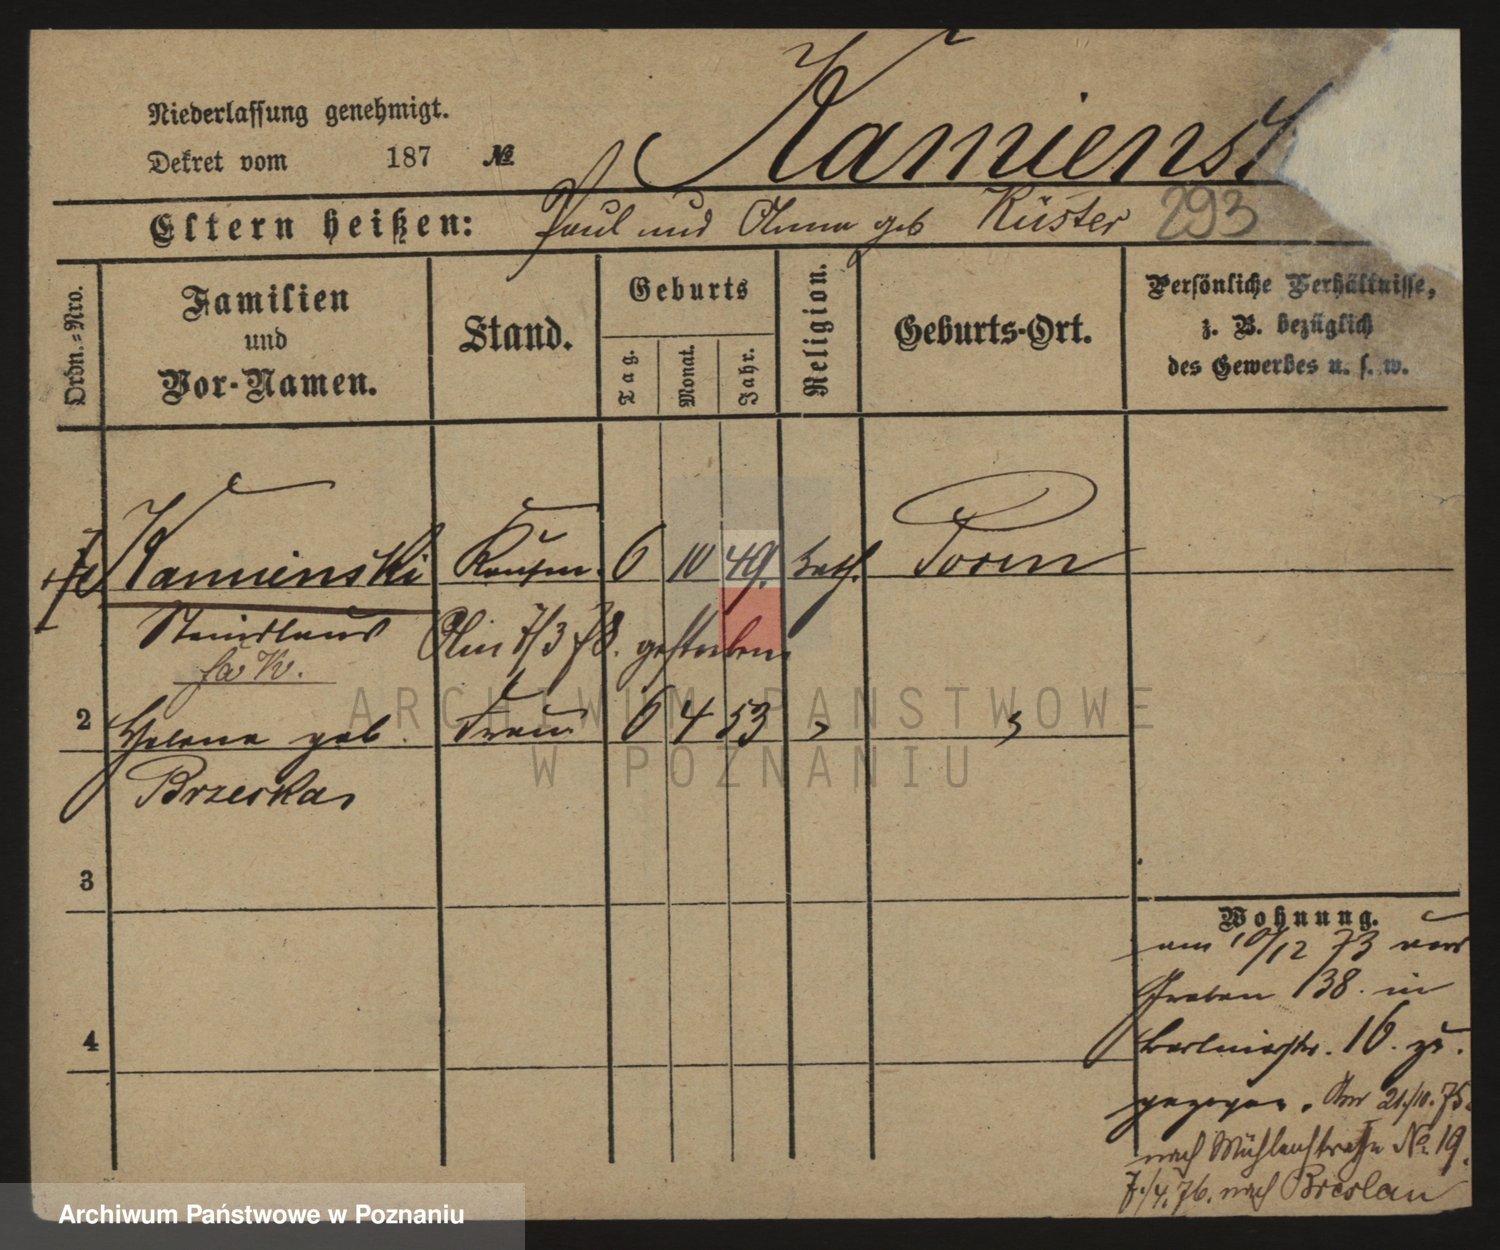 Kamiensk
Niederlassung genehmigt.
Dekret vom 187 №
Eltern heißen: Paul und Anna geb Küster 293
Ordn.-Nro.
Familien
und
Vor-Namen.
Stand.
Geburts
Tag.
Monat.
Jahr.
Religion.
Geburts-Ort.
Persönliche Verhältnisse,
z. B. bezüglich
des Gewerbes u. s. w.
Kamienski Kaufm. 6 10 49. kath. Posen
Stanislaus Am 7/3 78. gestorben
2 Helena geb. Frau 6 4 53 " "
Brzeska
3
4
Wohnung.
am 10/12 73 von
Graben 38. in
Berlinerstr. 16. zu.
gezogen. Am 21./10. 75.
nach Mühlenstraße № 19.
7./4. 76. nach Breslau
ARCHIWUM PAŃSTWOWE
W POZNANIU
Archiwum Państwowe w Poznaniu